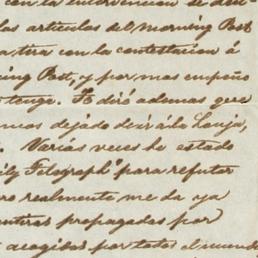 con la intervencion se dedi
las articulos del Morning Post
tira con la contestacion á
ning Post, y por mas empeño
tengo. He diró ademas que
mos dejado decir á la Lonja,
. Varias veces he estado
ily Telegraph" para refutar
ro realmente me da ya
entiras propagadas por
acogidas por todo el mundo